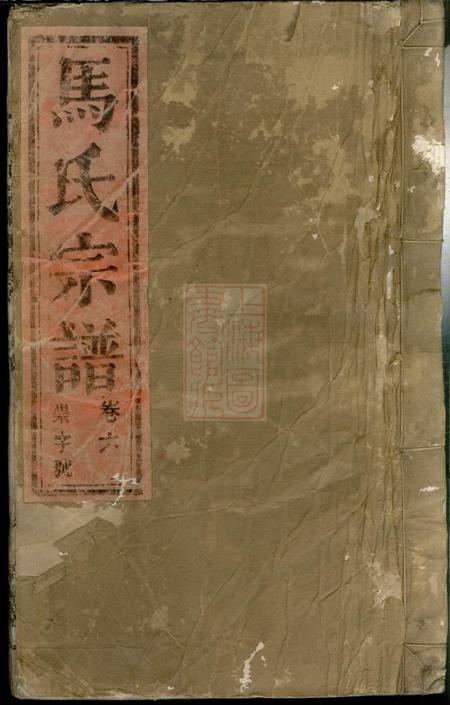 馬氏宗譜
卷六
崇字號
上海圖書館所